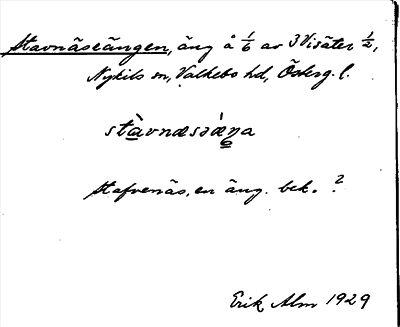 Stavnäsängen, äng å 1/6 av 3 Visäter 1/2,
Nykils sn, Valkebo hd, Österg. l.
stàvnæsǝæ̀ŋa
Stafvenäs, en äng. bek. ?
Erik Alm 1929